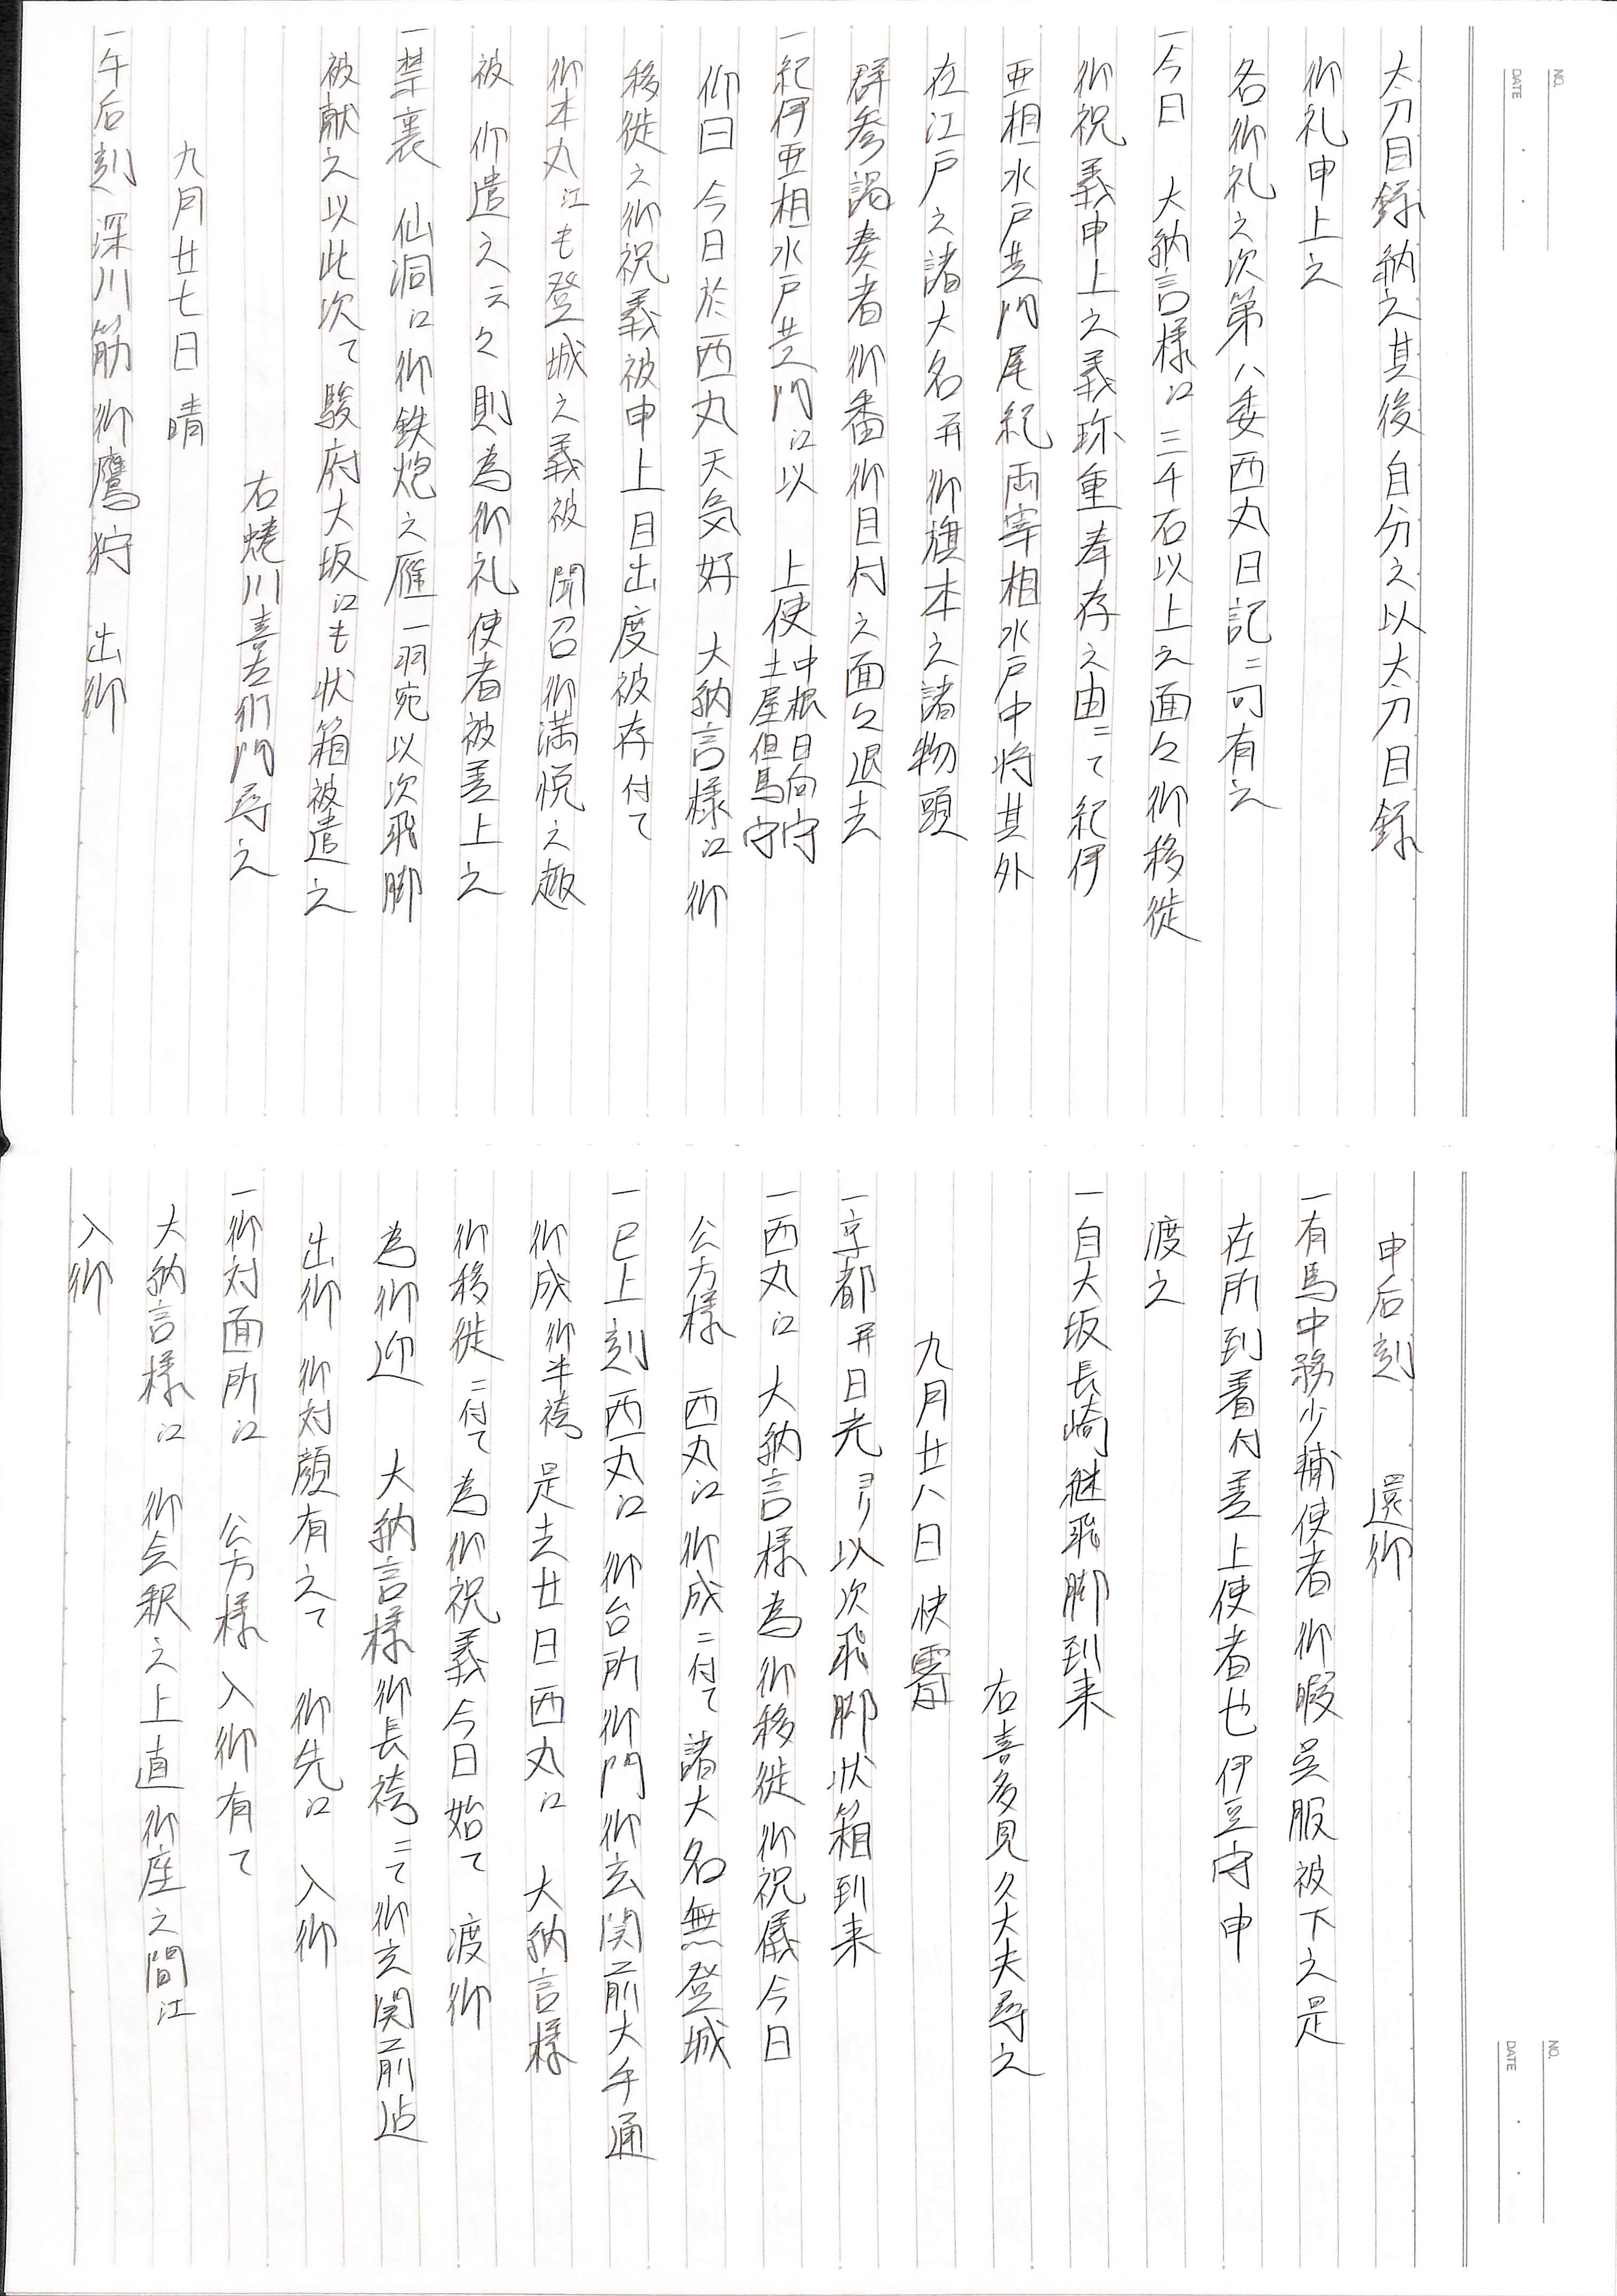 太刀目録納之其後自分之以太刀目録
御礼申上之
各御礼之次第ハ委西丸日記ニ可有之
一今日 大納言様江三千石以上之面々御移徙
御祝義申上之義珎重奉存之由ニて紀伊
亜相水戸黄門尾紀両宰相水戸中将其外
在江戸之諸大名并御旗本之諸物頭
群参謁奏者御番御目付之面々退去
一紀伊亜相水戸黄門江以 上使 中根日向守 土屋但馬守
仰曰 今日於西丸天気好 大納言様江御
移徙之御祝義被申上目出度被存付て
御本丸江も登城之義被 聞召御満悦之趣
被 仰遣之云々則為御礼使者被差上之
一禁裏 仙洞江御鉄炮之雁一羽宛以次飛脚
被献之以此次て駿府大坂江も状箱被遣之
右蜷川喜左衛門尋之
九月廿七日 晴
一午后刻深川筋御鷹狩 出御
申后刻 還御
一有馬中務少輔使者御暇呉服被下之是
在所到着付差上使者也伊豆守申
渡之
一自大坂長崎継飛脚到来
右喜多見久大夫尋之
九月廿八日 快霽
一京都并日光ヨリ以次飛脚状箱到来
一西丸江 大納言様為御移徙御祝儀今日
公方様 西丸江御成ニ付て諸大名無登城
一巳上刻西丸江 御台所御門御玄関前大手通
御成御半袴 是去廿日西丸江 大納言様
御移徙ニ付て為御祝義今日始て 渡御
為御迎 大納言様御長袴ニて御玄関前迠
出御 御対顔有之て 御先江 入御
一御対面所江 公方様入御有て
大納言様江 御会釈之上直御座之間江
入御
NO.
DATE
NO.
DATE